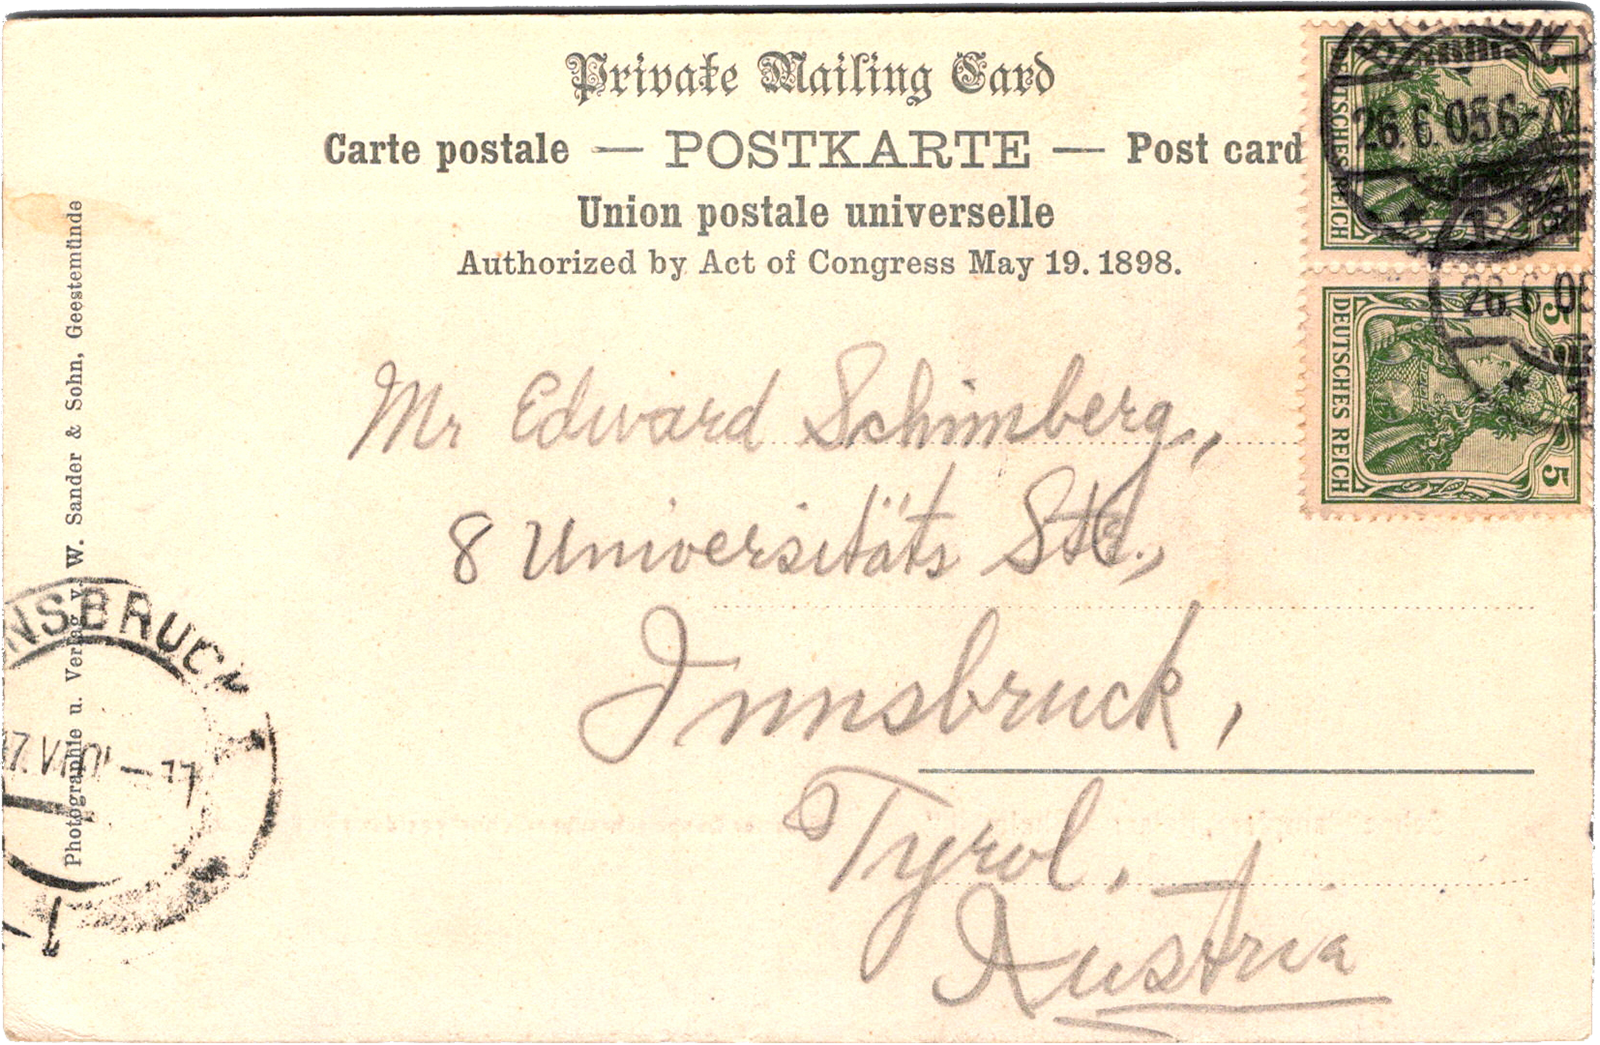 Private Mailing Card
Carte postale — POSTKARTE — Post card
Union postale universelle
Authorized by Act of Congress May 19. 1898.
Mr Edward Schimberg,
8 Universitäts Str.,
Innsbruck,
Tyrol,
Austria
Photographie u. Verlag v. W. Sander & Sohn, Geestemünde
5
DEUTSCHES REICH
26.6.05 6-7N.
5
5
DEUTSCHES REICH
26.6.05
INNSBRUCK 1